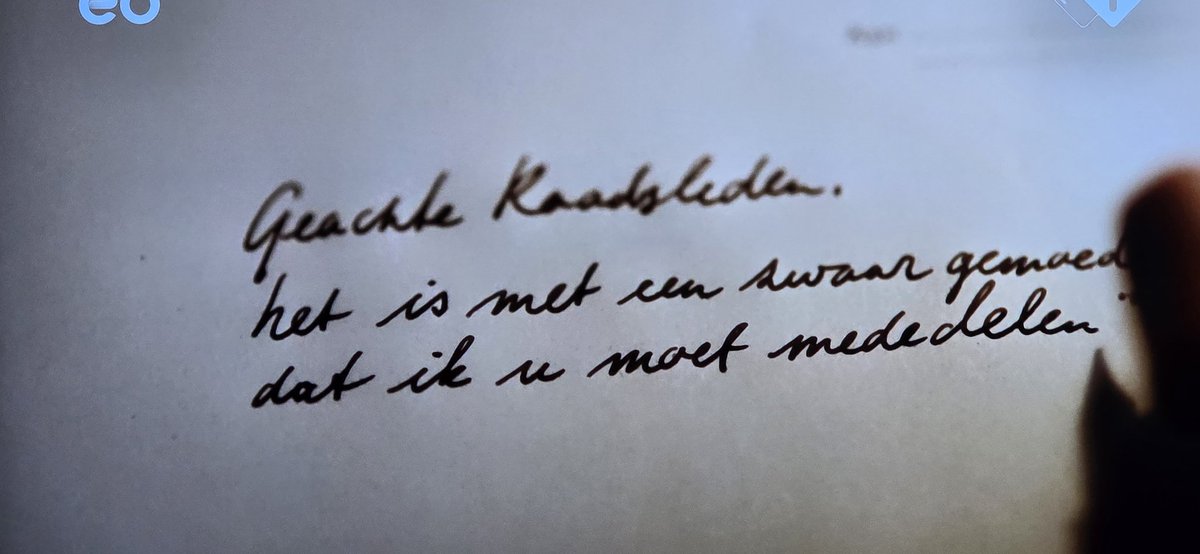 eo
1
Geachte Raadsleden.
het is met een zwaar gemoed
dat ik u moet mededelen